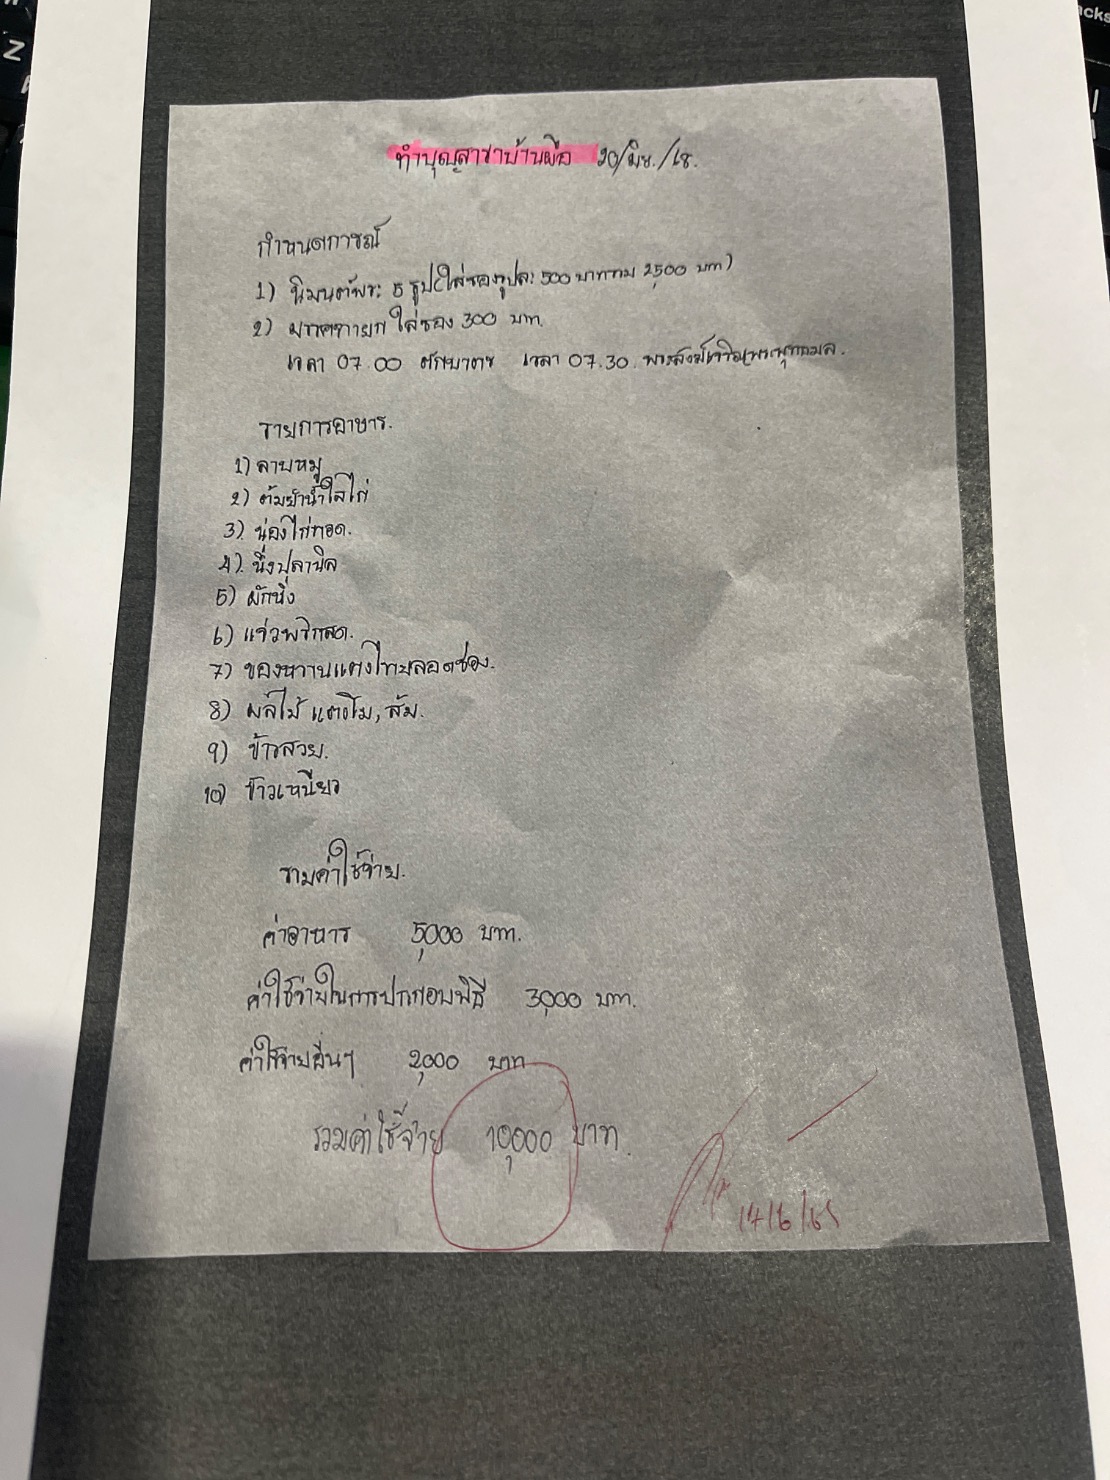 ทำบุญสาขาบ้านผือ 20/มิย./68.
กำหนดการณ์
1) นิมนต์พระ 5 รูป(ใส่ซองรูปละ 500 บาทรวม 2,500 บาท)
2) มรรคทายก ใส่ซอง 300 บาท.
เวลา 07.00 ตักบาตร เวลา 07.30. พระสงฆ์เจริญพระพุทธมล.
รายการอาหาร.
1) ลาบหมู
2) ต้มยำน้ำใสไก่
3) น่องไก่ทอด.
4) นึ่งปลานิล
5) ผักนึ่ง
6) แจ่วพริกสด.
7) ของหวานแตงไทยลอดช่อง.
8) ผลไม้ แตงโม, ส้ม.
9) ข้าวสวย.
10) ข้าวเหนียว
รวมค่าใช้จ่าย.
ค่าอาหาร 5,000 บาท.
ค่าใช้จ่ายในการประกอบพิธี 3,000 บาท.
ค่าใช้จ่ายอื่นๆ 2,000 บาท
รวมค่าใช้จ่าย 10,000 บาท.
14/6/68
Z